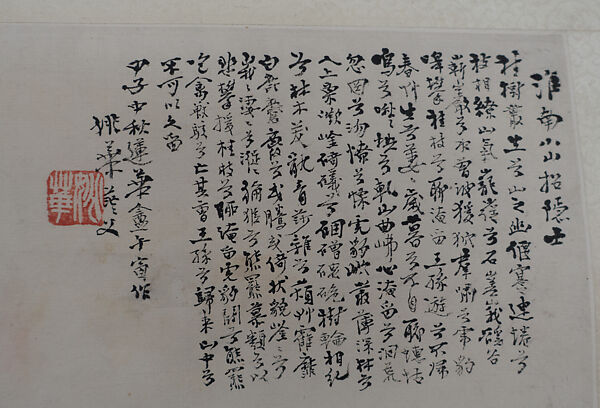 淮南小山招隱士
桂樹叢生兮山之幽偃蹇連蜷兮
枝相繚山氣巃嵸兮石嵯峨谿谷
嶄巖兮水曾波猨狖羣嘯兮虎豹
嗥攀桂枝兮聊淹留王孫遊兮不歸
春艸生兮萋萋歲暮兮不自聊蟪蛄
鳴兮啾啾坱兮軋山曲岪心淹留兮洞荒
忽罔兮沕憭兮慄虎豹岤叢薄深林兮
人上慄嶔崟碕礒兮碅磳磈硊樹輪相糾
兮林木茷骫青莎雜兮薠艸靃靡
白鹿麏麚兮或騰或倚狀貌崟崟兮
峨峨淒淒兮漇漇獼猴兮熊羆慕類兮以
悲攀援桂枝兮聊淹留虎豹鬥兮熊羆
咆禽獸駭兮亡其曹王孫兮歸來山中兮
不可以久留
甲子中秋蓮華盦午窗作
姚華茫父
姚華